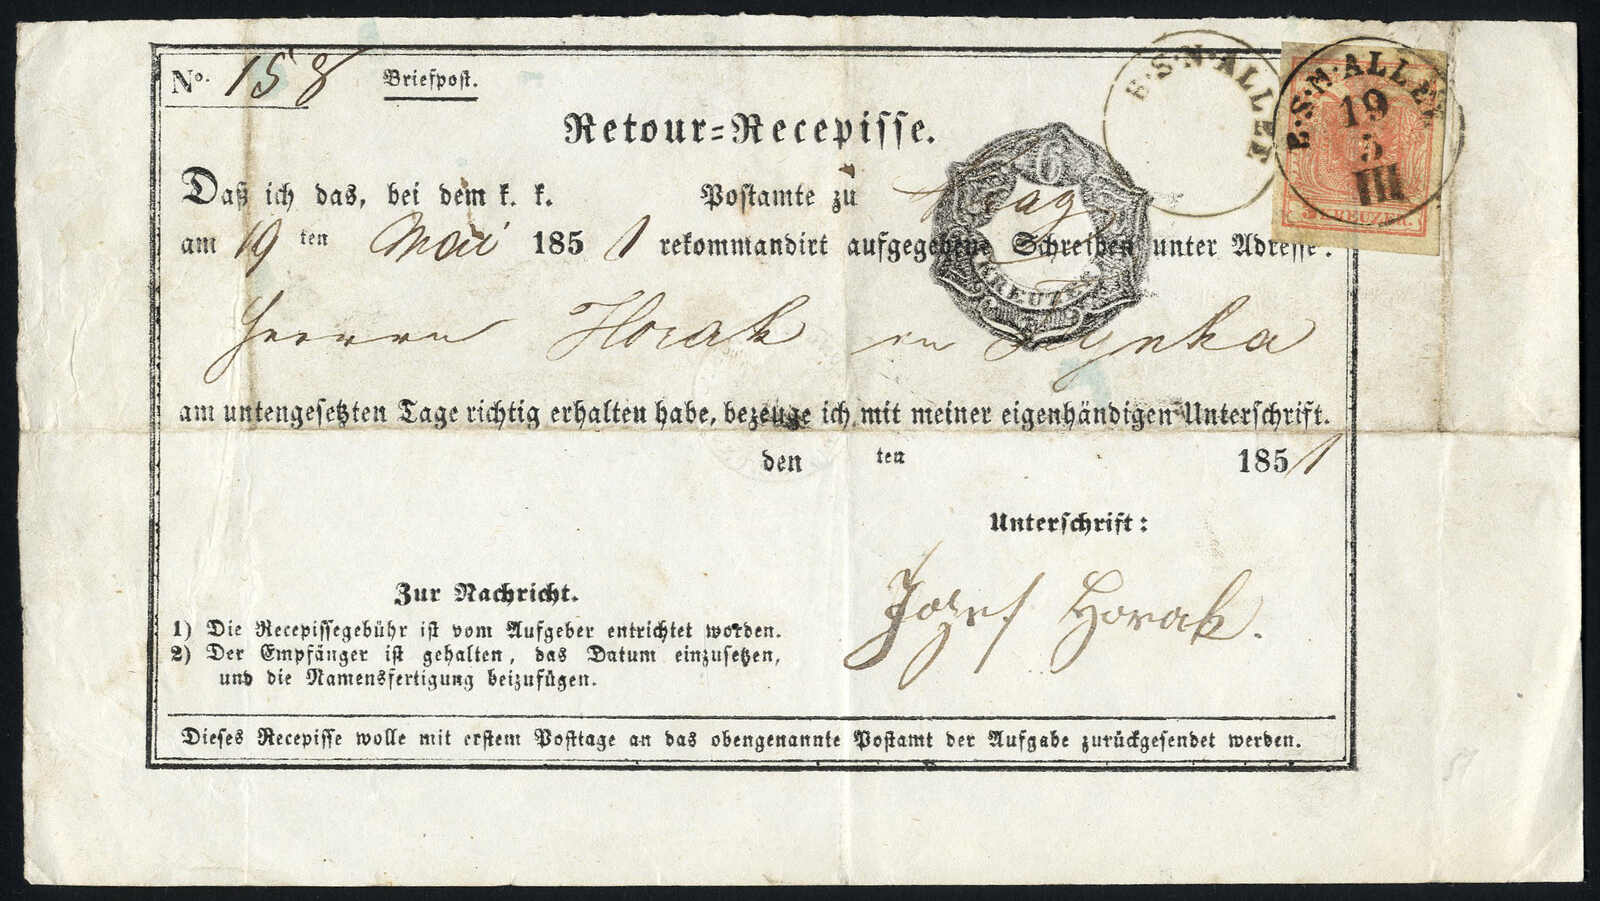 No. 158 Briefpost.
Retour=Recepisse.
Daß ich das, bei dem k. k. Postamte zu Prag
am 19 ten Mai 1851 rekommandirt aufgegebene Schreiben unter Adresse:
Herrn Horak in
am untengesetzten Tage richtig erhalten habe, bezeuge ich mit meiner eigenhändigen Unterschrift.
den ten 1851
Unterschrift:
Jozef Horak.
Zur Nachricht.
1) Die Recepissegebühr ist vom Aufgeber entrichtet worden.
2) Der Empfänger ist gehalten, das Datum einzusetzen,
und die Namensfertigung beizufügen.
Dieses Recepisse wolle mit erstem Posttage an das obengenannte Postamt der Aufgabe zurückgesendet werden.
6
KREUZER
B·S·N·ALLEE
B·S·N·ALLEE
19
5
III
3 KREUZER